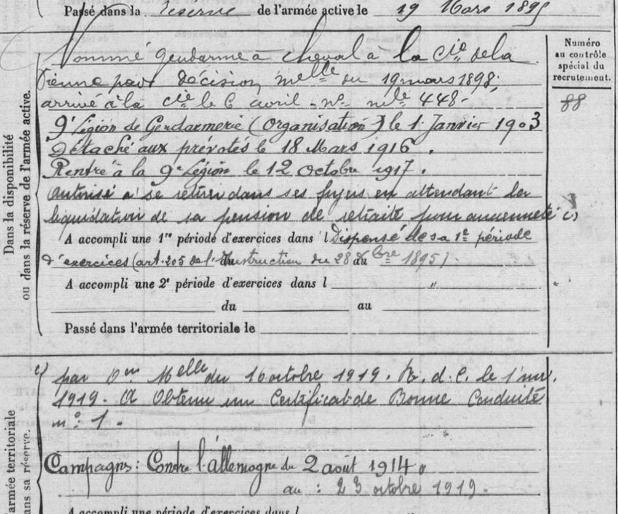 Passé dans la réserve de l'armée active le 19 Mars 1895
Numéro
au contrôle
spécial du
recrutement.
88
Dans la disponibilité
ou dans la réserve de l'armée active.
Nommé gendarme à cheval à la Cie de la
Vienne par Décision melle du 19 mars 1898,
arrivé à la cie le 6 avril - n° mle 448 -
9e Légion de Gendarmerie (Organisation) le 1 Janvier 1903
Détaché aux prévôtés le 18 Mars 1916.
Rentré à la 9e Légion le 12 Octobre 1917.
autorisé à se retirer dans ses foyers en attendant la
liquidation de sa pension de retraite pour ancienneté
A accompli une 1re période d'exercices dans l Dispensé de sa 1e période
d'exercices (art. 205 de l'Instruction du 28 bre 1895)
du au
A accompli une 2e période d'exercices dans l "
du au
Passé dans l'armée territoriale le
armée territoriale
dans sa réserve.
par Melle du 10 octobre 1919. R. d. C. le
1919. A Obtenu un Certificat de Bonne Conduite
n° 1.
Campagnes: Contre l'Allemagne du 2 août 1914
au : 23 octobre 1919.
A accompli une période d'exercices dans l